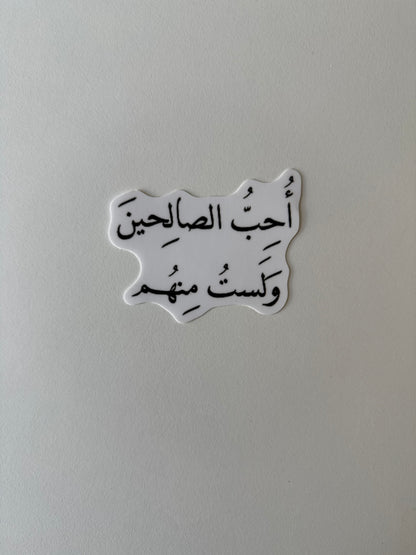 أُحِبُّ الصالِحينَ
وَلَستُ مِنهُـم